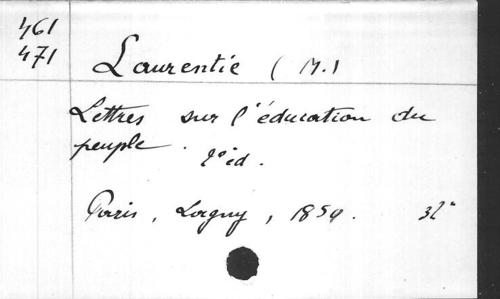 461
471
Laurentie (M.)
Lettres sur l'éducation du
peuple. 2e éd.
Paris, Lagny, 1850. 32°